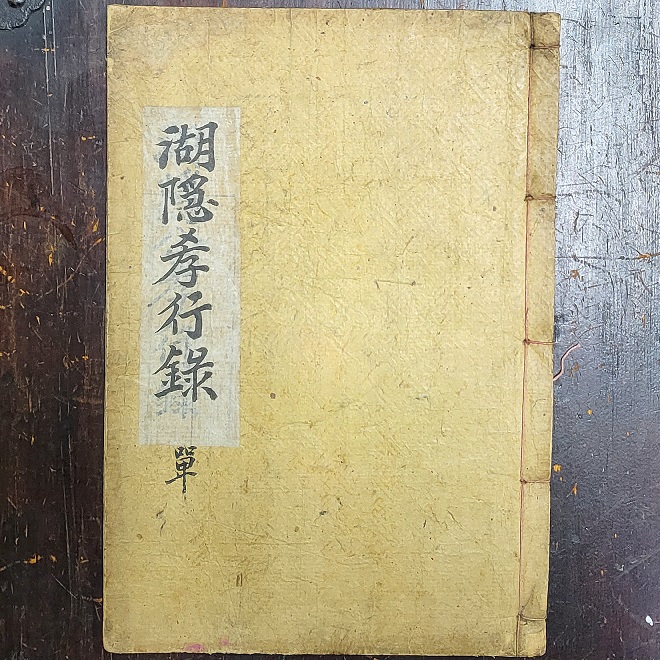 湖隱孝行錄
單